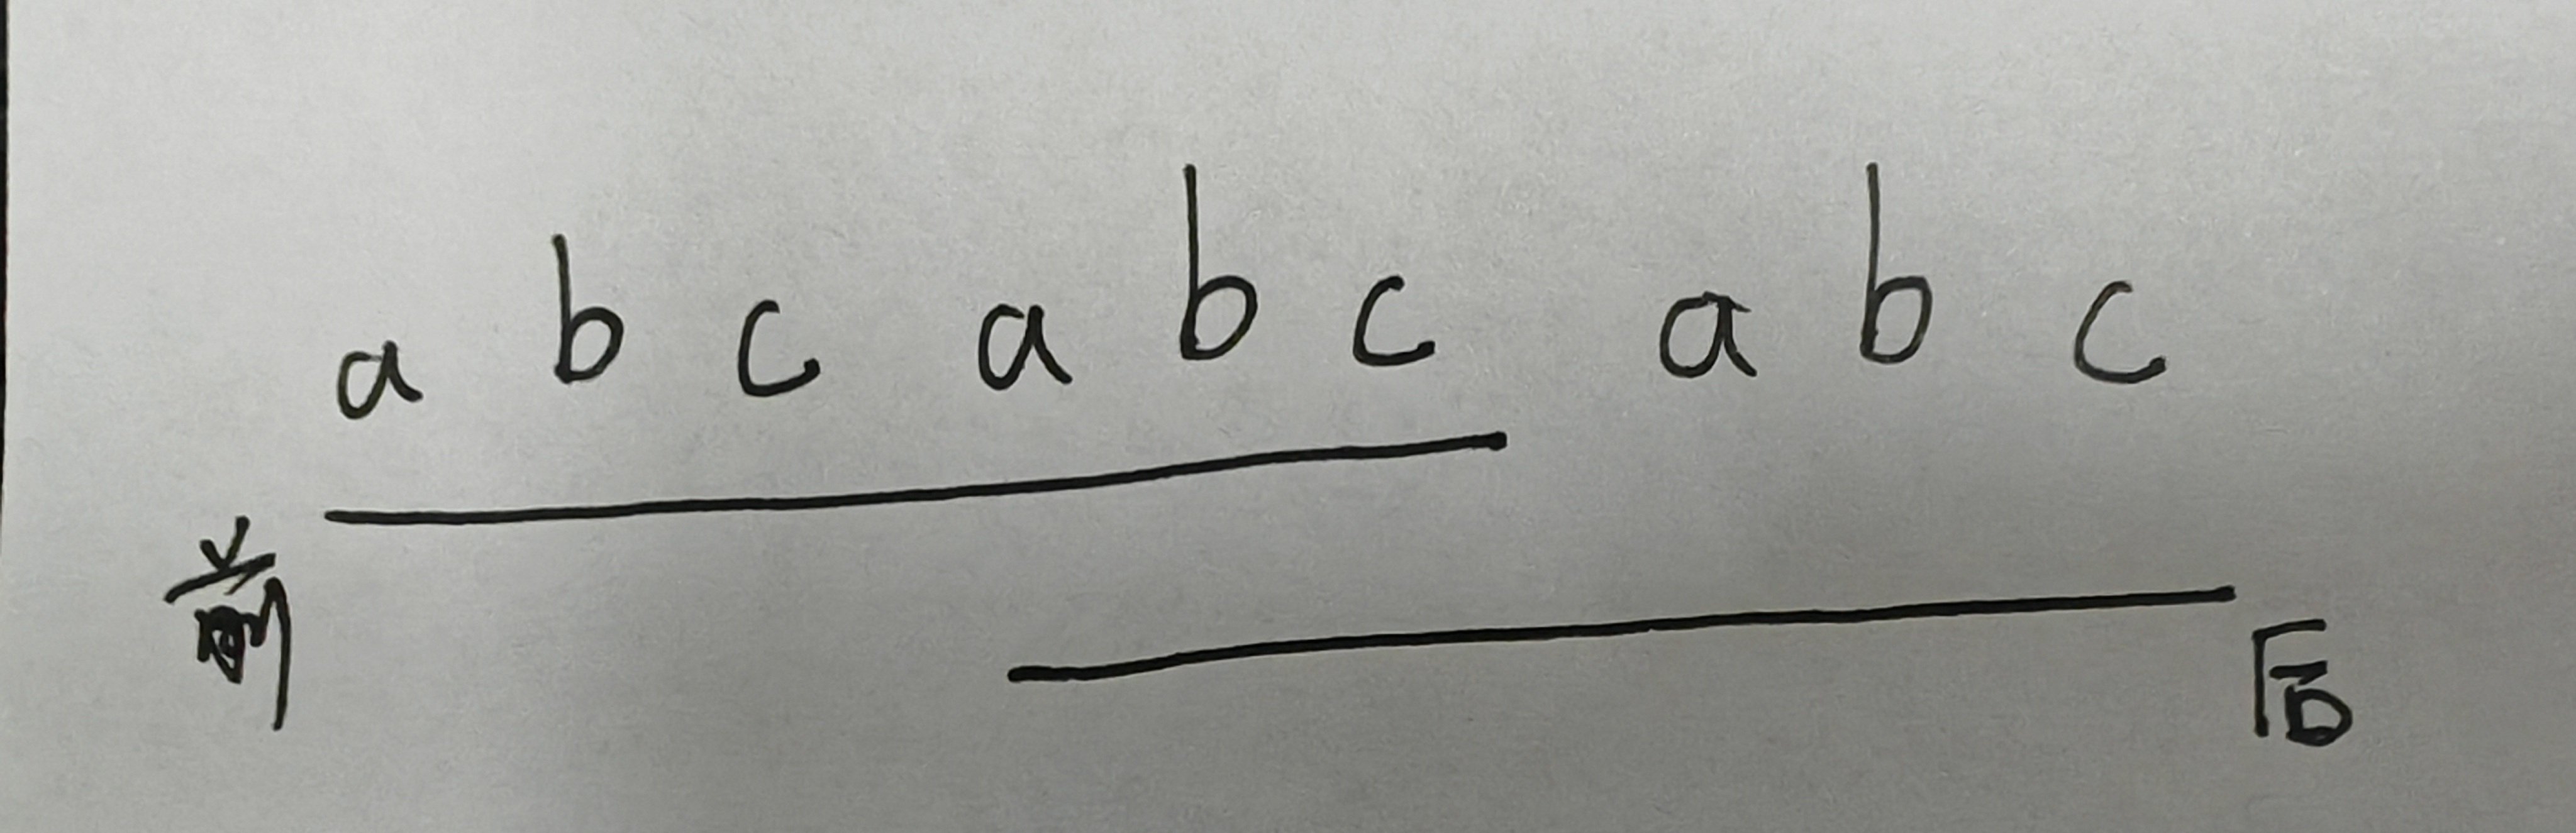 a b c a b c a b c
前
后